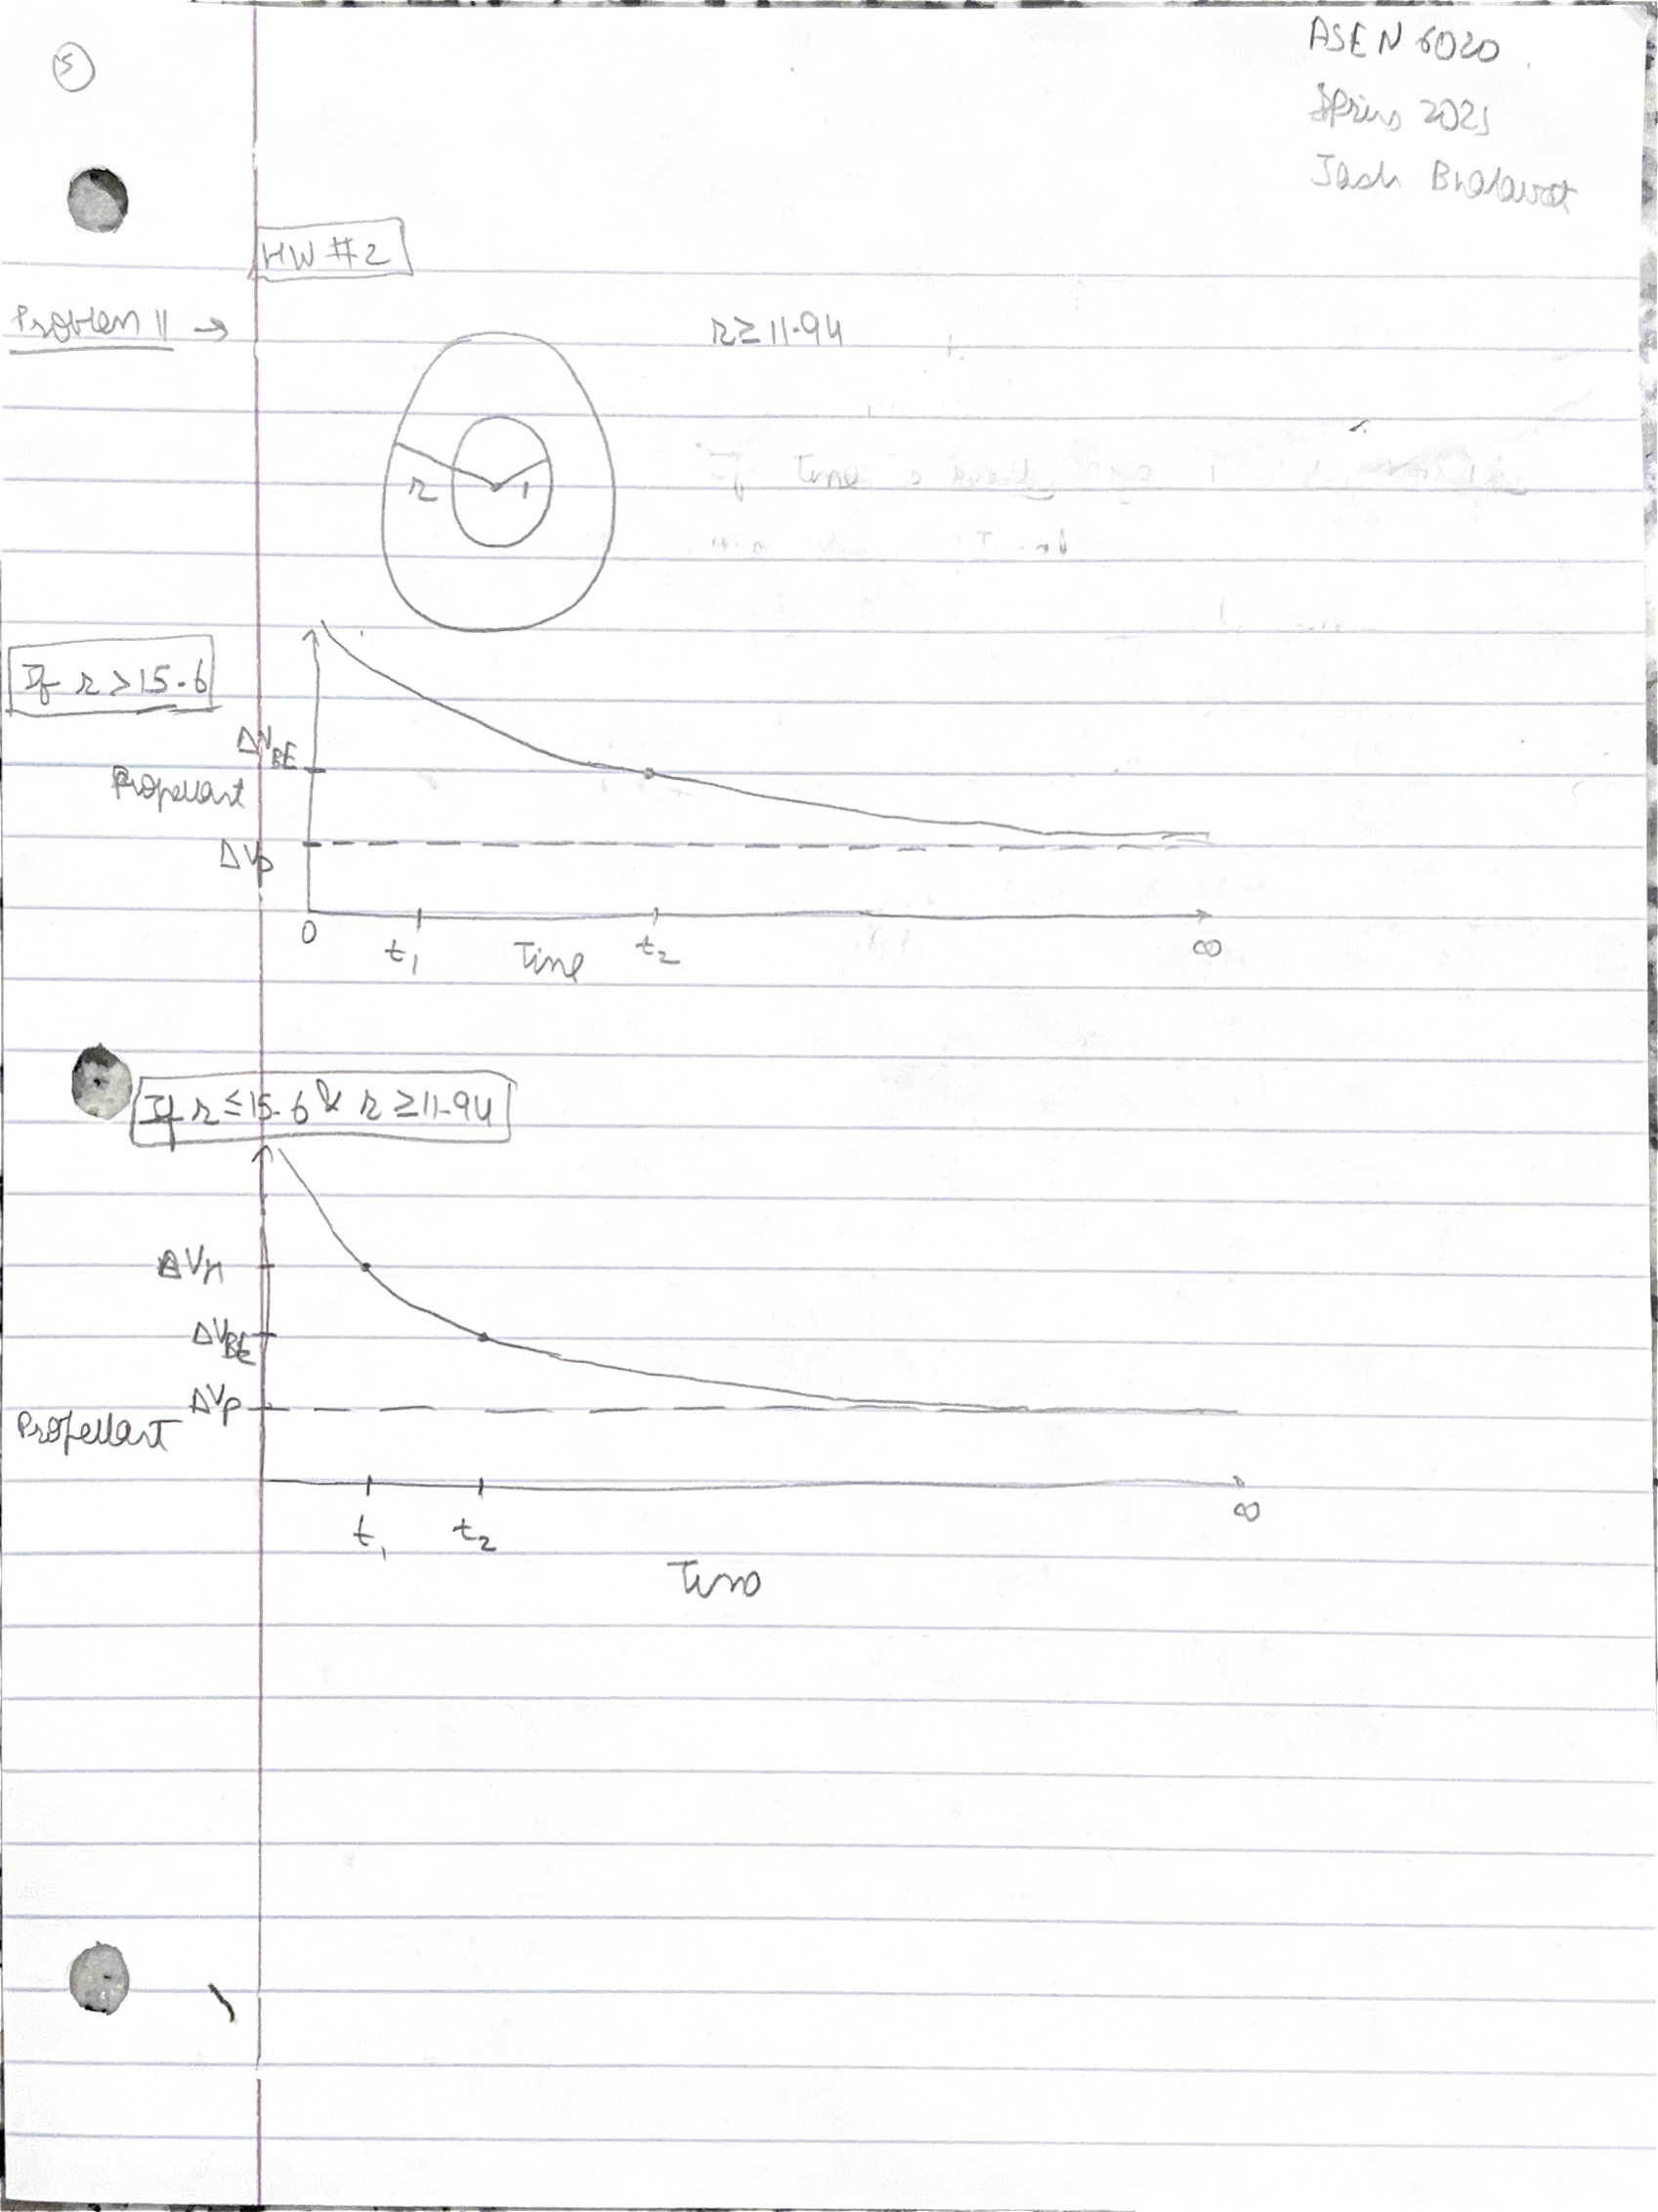 5
ASEN 6020
Spring 2025
Jash Bhalavat
HW #2
Problem 11 →
r ≥ 11.94
r
1
If r > 15.6
ΔV_BE
Propellant
ΔV_P
0
t_1
Time
t_2
∞
If r ≤ 15.6 & r ≥ 11.94
ΔV_H
ΔV_BE
ΔV_P
Propellant
∞
t_1
t_2
Time